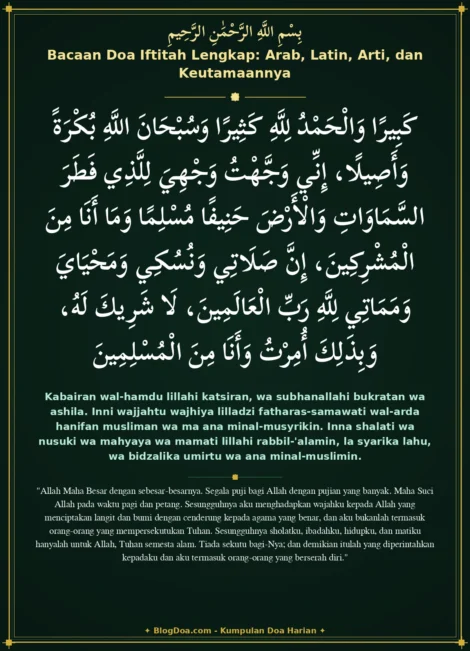 بِسْمِ اللَّهِ الرَّحْمَٰنِ الرَّحِيمِ
Bacaan Doa Iftitah Lengkap: Arab, Latin, Arti, dan
Keutamaannya
كَبِيرًا وَالْحَمْدُ لِلَّهِ كَثِيرًا وَسُبْحَانَ اللَّهِ بُكْرَةً
وَأَصِيلًا، إِنِّي وَجَّهْتُ وَجْهِيَ لِلَّذِي فَطَرَ
السَّمَاوَاتِ وَالْأَرْضَ حَنِيفًا مُسْلِمًا وَمَا أَنَا مِنَ
الْمُشْرِكِينَ، إِنَّ صَلَاتِي وَنُسُكِي وَمَحْيَايَ
وَمَمَاتِي لِلَّهِ رَبِّ الْعَالَمِينَ، لَا شَرِيكَ لَهُ،
وَبِذَلِكَ أُمِرْتُ وَأَنَا مِنَ الْمُسْلِمِينَ
Kabairan wal-hamdu lillahi katsiran, wa subhanallahi bukratan wa
ashila. Inni wajjahtu wajhiya lilladzi fatharas-samawati wal-arda
hanifan musliman wa ma ana minal-musyrikin. Inna shalati wa
nusuki wa mahyaya wa mamati lillahi rabbil-'alamin, la syarika lahu,
wa bidzalika umirtu wa ana minal-muslimin.
"Allah Maha Besar dengan sebesar-besarnya. Segala puji bagi Allah dengan pujian yang banyak. Maha Suci
Allah pada waktu pagi dan petang. Sesungguhnya aku menghadapkan wajahku kepada Allah yang
menciptakan langit dan bumi dengan cenderung kepada agama yang benar, dan aku bukanlah termasuk
orang-orang yang mempersekutukan Tuhan. Sesungguhnya sholatku, ibadahku, hidupku, dan matiku
hanyalah untuk Allah, Tuhan semesta alam. Tiada sekutu bagi-Nya; dan demikian itulah yang diperintahkan
kepadaku dan aku termasuk orang-orang yang berserah diri."
✦ BlogDoa.com - Kumpulan Doa Harian ✦